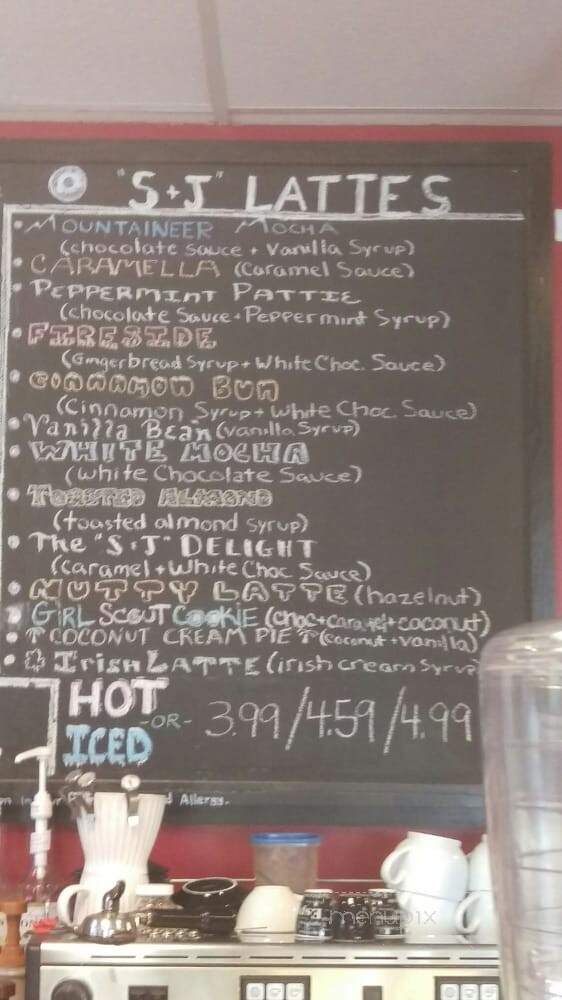 "S+J" LATTES
• MOUNTAINEER MOCHA
(chocolate sauce + Vanilla Syrup)
• CARAMELLA (Caramel Sauce)
• PEPPERMINT PATTIE
(chocolate Sauce + Peppermint Syrup)
• FIRESIDE
(Gingerbread Syrup + White Choc. Sauce)
• CINNAMON BUN
(Cinnamon Syrup + White Choc. Sauce)
• Vanilla Bean (vanilla Syrup)
• WHITE MOCHA
(White Chocolate Sauce)
• TOASTED ALMOND
(toasted almond syrup)
• The "S+J" DELIGHT
(Caramel + White Choc Sauce)
• NUTTY LATTE (hazelnut)
GIRL SCOUT COOKIE (choc + caramel + coconut)
• ↑ COCONUT CREAM PIE ↑ (coconut + vanilla)
• IRISH LATTE (irish cream Syrup)
HOT
-OR- 3.99/4.59/4.99
ICED
Allergs.
menupix